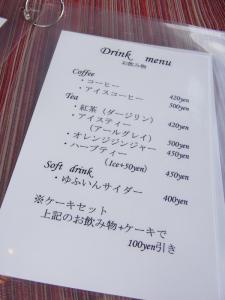 Drink menu
お飲み物
Coffee
・コーヒー 420yen
・アイスコーヒー 500yen
Tea
・紅茶（ダージリン） 420yen
・アイスティー
（アールグレイ） 500yen
・オレンジジンジャー 450yen
・ハーブティー 450yen
(Ice+50yen)
Soft drink
・ゆふいんサイダー 400yen
※ケーキセット
上記のお飲み物+ケーキで
100yen引き